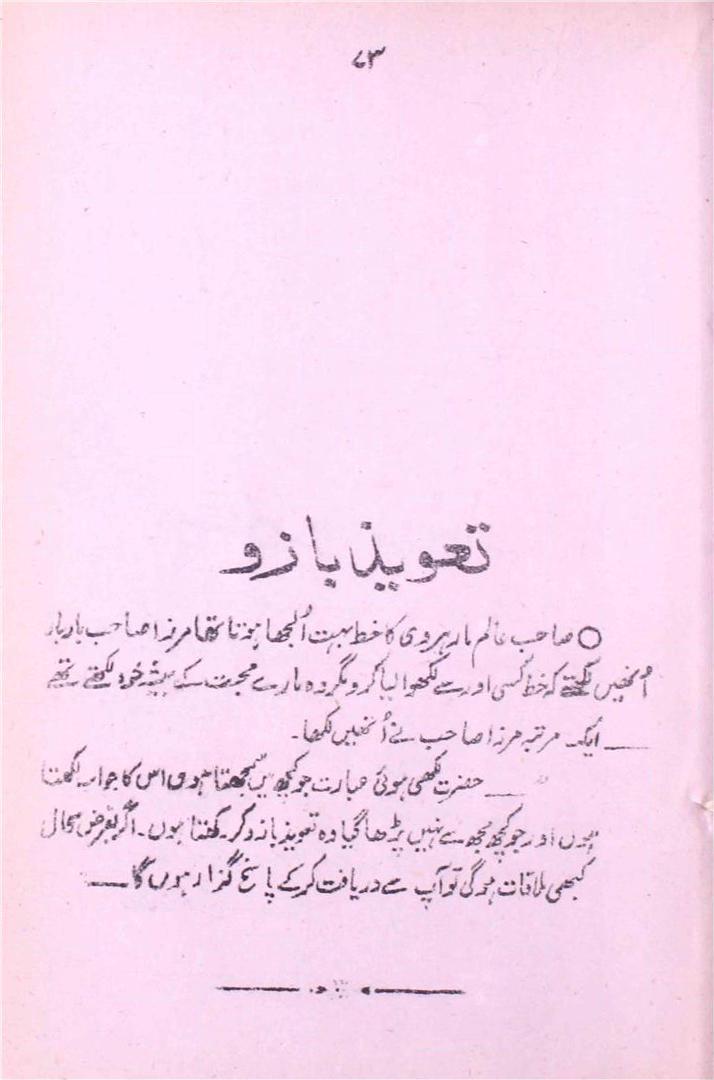 ۷۳
تعویذ بازو
○ صاحب عالم مارہروی کا خط بہت اُلجھا ہوتا تھا مرزا صاحب بار بار
اُنھیں لکھتے کہ خط کسی اور سے لکھوا لیا کرو مگر وہ مارے محبت کے ہمیشہ خود لکھتے تھے
— ایک مرتبہ مرزا صاحب نے اُنھیں لکھا۔
— حضرت لکھی ہوئی عبارت جو کچھ میں سمجھتا ہوں اس کا جواب لکھتا
ہوں اور جو کچھ مجھ سے نہیں پڑھا گیا وہ تعویذ بازو کر رکھتا ہوں۔ اگر بفرض محال
کبھی ملاقات ہوگی تو آپ سے دریافت کر کے پاسخ گزار ہوں گا—